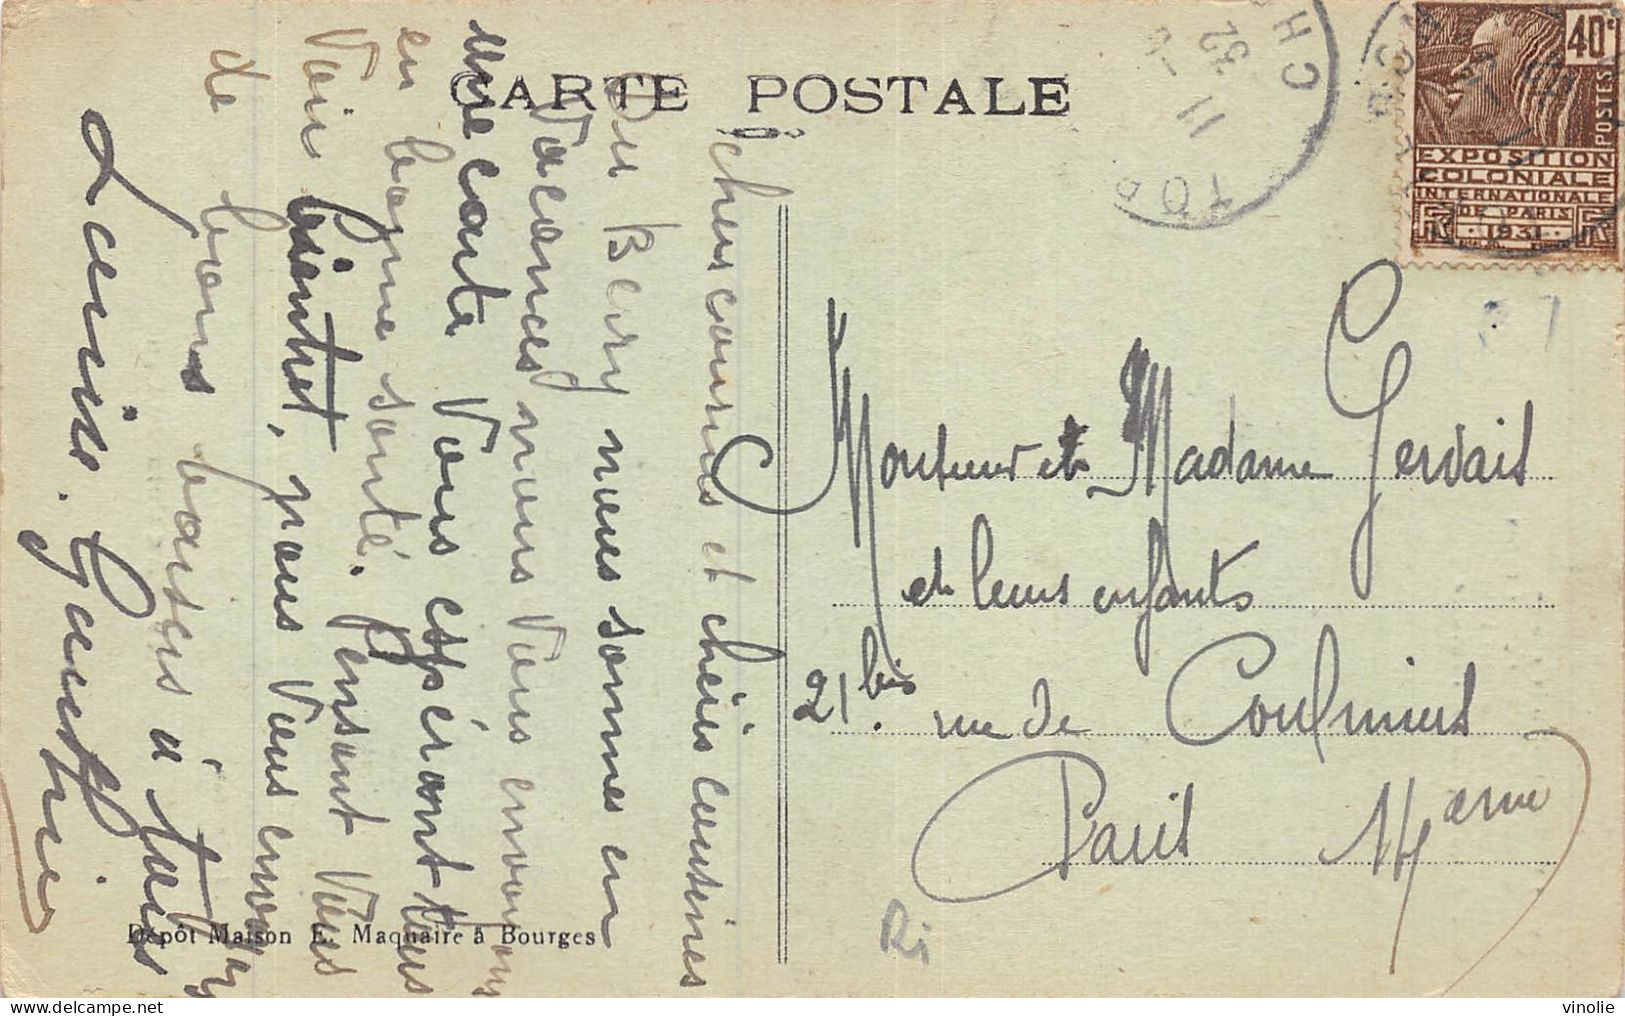 CARTE POSTALE
chers cousins et chères cousines
Du Berry nous sommes en
Vacances nous Vous envoyons
une carte Vous espérant tous
en bonne santé. Pensant Vous
Voir bientôt, nous Vous envoyons
de bons baisers à tous
Louise. Gauthier
Dépôt Maison E. Maquaire à Bourges
CH
11
32
40c
POSTES
EXPOSITION
COLONIALE
INTERNATIONALE
DE PARIS
1931
Monsieur et Madame Gervais
et leurs enfants
21 bis. rue de Coulmiers
Paris 14eme
Ri
vinolie